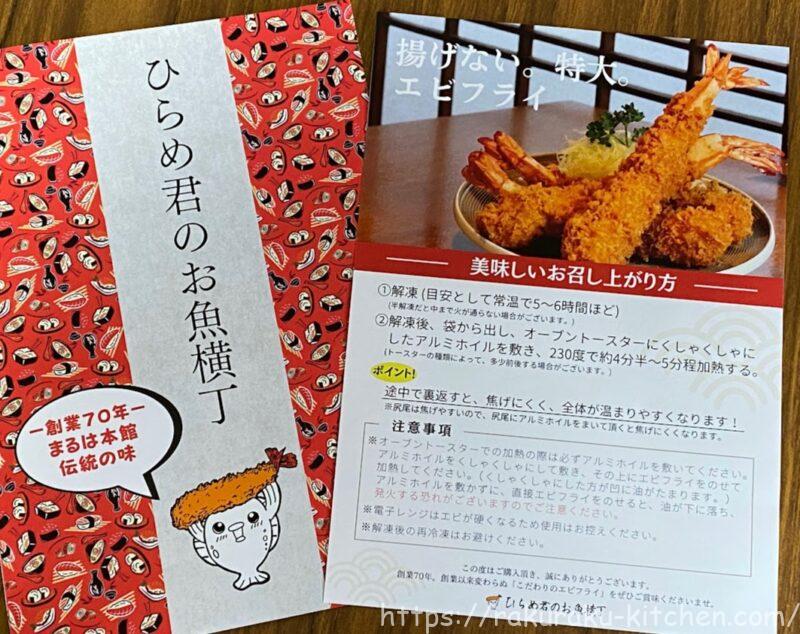 ひらめ君のお魚横丁
ー創業70年ー
まるは本館
伝統の味
揚げない。特大。
エビフライ
美味しいお召し上がり方
①解凍(目安として常温で5〜6時間ほど)
(半解凍だと中まで火が通らない場合がございます。)
②解凍後、袋から出し、オーブントースターにくしゃくしゃに
したアルミホイルを敷き、230度で約4分半〜5分程加熱する。
(トースターの種類によって、多少前後する場合がございます。)
ポイント!
途中で裏返すと、焦げにくく、全体が温まりやすくなります!
※尻尾は焦げやすいので、尻尾にアルミホイルをまいて頂くと焦げにくくなります。
注意事項
※オーブントースターでの加熱の際は必ずアルミホイルを敷いてください。
アルミホイルをくしゃくしゃにして敷き、その上にエビフライをのせて
加熱してください。(くしゃくしゃにした方が凹に油がたまります。)
アルミホイルを敷かずに、直接エビフライをのせると、油が下に落ち、
発火する恐れがございますのでご注意ください。
※電子レンジはエビが硬くなるため使用はお控えください。
※解凍後の再冷凍はお避けください。
この度はご購入頂き、誠にありがとうございます。
創業70年。創業以来変わらぬ「こだわりのエビフライ」をぜひご賞味くださいませ。
ひらめ君のお魚横丁
https://rakuraku-kitchen.com/